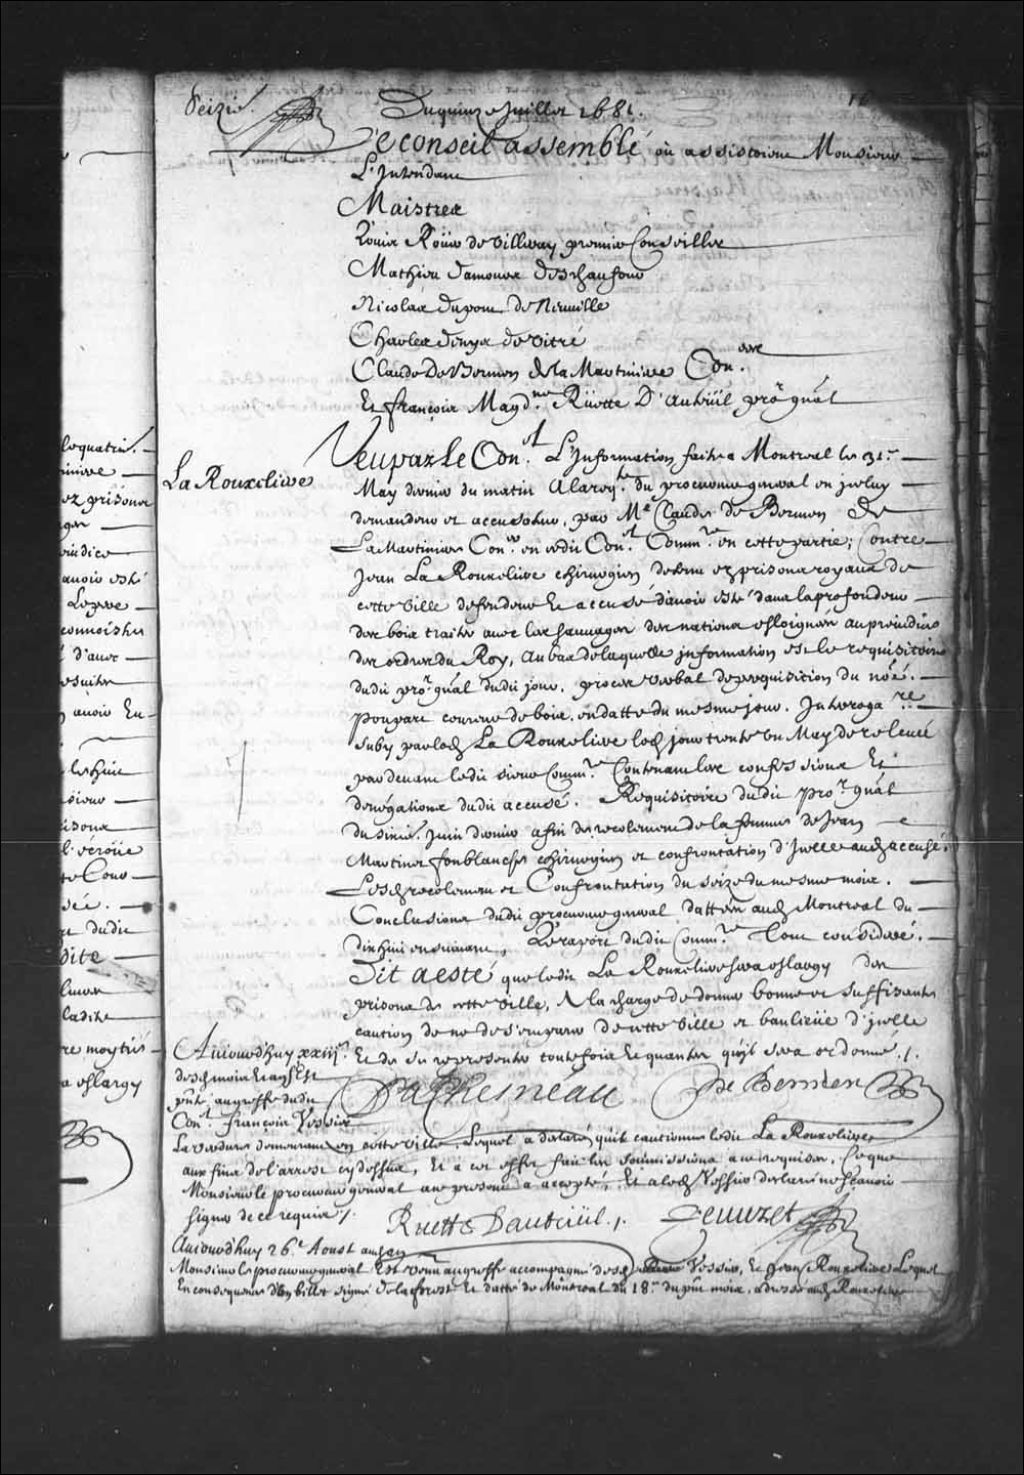 Seizie.
Du quinze Juillet 1681.
16
Le conseil assemblé où assistoient Monsieur
L'Intendant
Maistres
Louis Roüer de Villeray premier Conseiller
Mathieu Damours Deschaufour
Nicolas Dupont de Neuuille
Charles Denys de Vitré
Claude De Bermen de la Martiniere Con.ers
Et françois Magd.ne Rüette D'Auteüil pro.r gnãl
La Rouxeliere
Veu par Le Con.el L'Information faitte a Montreal le 31.e
May dernier du matin A la req.te du procureur general en iceluy
demandeur et accusateur, par M.e Claude de Bermen de
La Martiniere Con.er en cedit Con.el Comm.re en cette partie; Contre
Jean La Rouxeliere chirurgien detenu ez prisons royaux de
cette Ville defendeur Et accusé d'auoir esté dans la profondeur
des bois traitter auec les sauuages des nations esloignées au preiudice
des ordres du Roy, Au bas de laquelle jnformation est le requisitoire
dudit pro.r gnãl dudit jour. procez verbal de perquisition du no.é
Poupart coureur de bois, en datte du mesme jour. Interroga.re
suby par led. La Rouxeliere led. jour trente vn May de releuée
par deuant ledit sieur Comm.re Contenant les confessions Et
denégations dudit accusé. Requisitoire dudit pro.r gnãl
du Juin dernier afin de recolement de la femme de Jean
Martinet fonblanche chirurgien et confrontation d'Jcelle aud. accusé.
Lesd. recolement et Confrontation du seize du mesme mois.
Conclusions dudit procureur general dattées aud. Montreal du
dix huit ensuiuant, Le raport dudit Comm.re Tout consideré.
Dit a esté que ledit La Rouxeliere sera eslargy des
prisons de cette Ville, A la charge de donner bonne et suffisante
caution de ne desemparer de cette Ville et banlieüe d'jcelle
Et de se representer toutefois Et quantes qu'il sera ordonné ./.
DuChesneau
De Bermen
Auiourd'huy xxiii.e
desd. mois et an Est
au greffe dudit
Con.el françois Vessier
La verdure demeurant en cette ville Lequel a declaré qu'il cautionne ledit La Rouxeliere
aux fins de l'arrest cy dessus, Et a cet effet fait les soumissions a ce requises, Ce que
Monsieur le procureur general a ce present a accepté, Et a led. Vessier declaré ne sçauoir
signer de ce requis ./.
Ruette Dauteüil ./.
Peuuret
Auiourd'huy 26.e Aoust aud. an
Monsieur le procureur general Est venu au greffe accompagné desd. Vessier, Et Jean Rouxeliere Lequel
En consequence d'un billet signé Et datté de Montreal du 18.e du mois, adressé aud. Rouxeliere
loquatrie.
ez prisons
preiudice
auoir esté
Le pere
connoistre
d'auec
auoir Eu
dudit
dite
ladite
eslargy